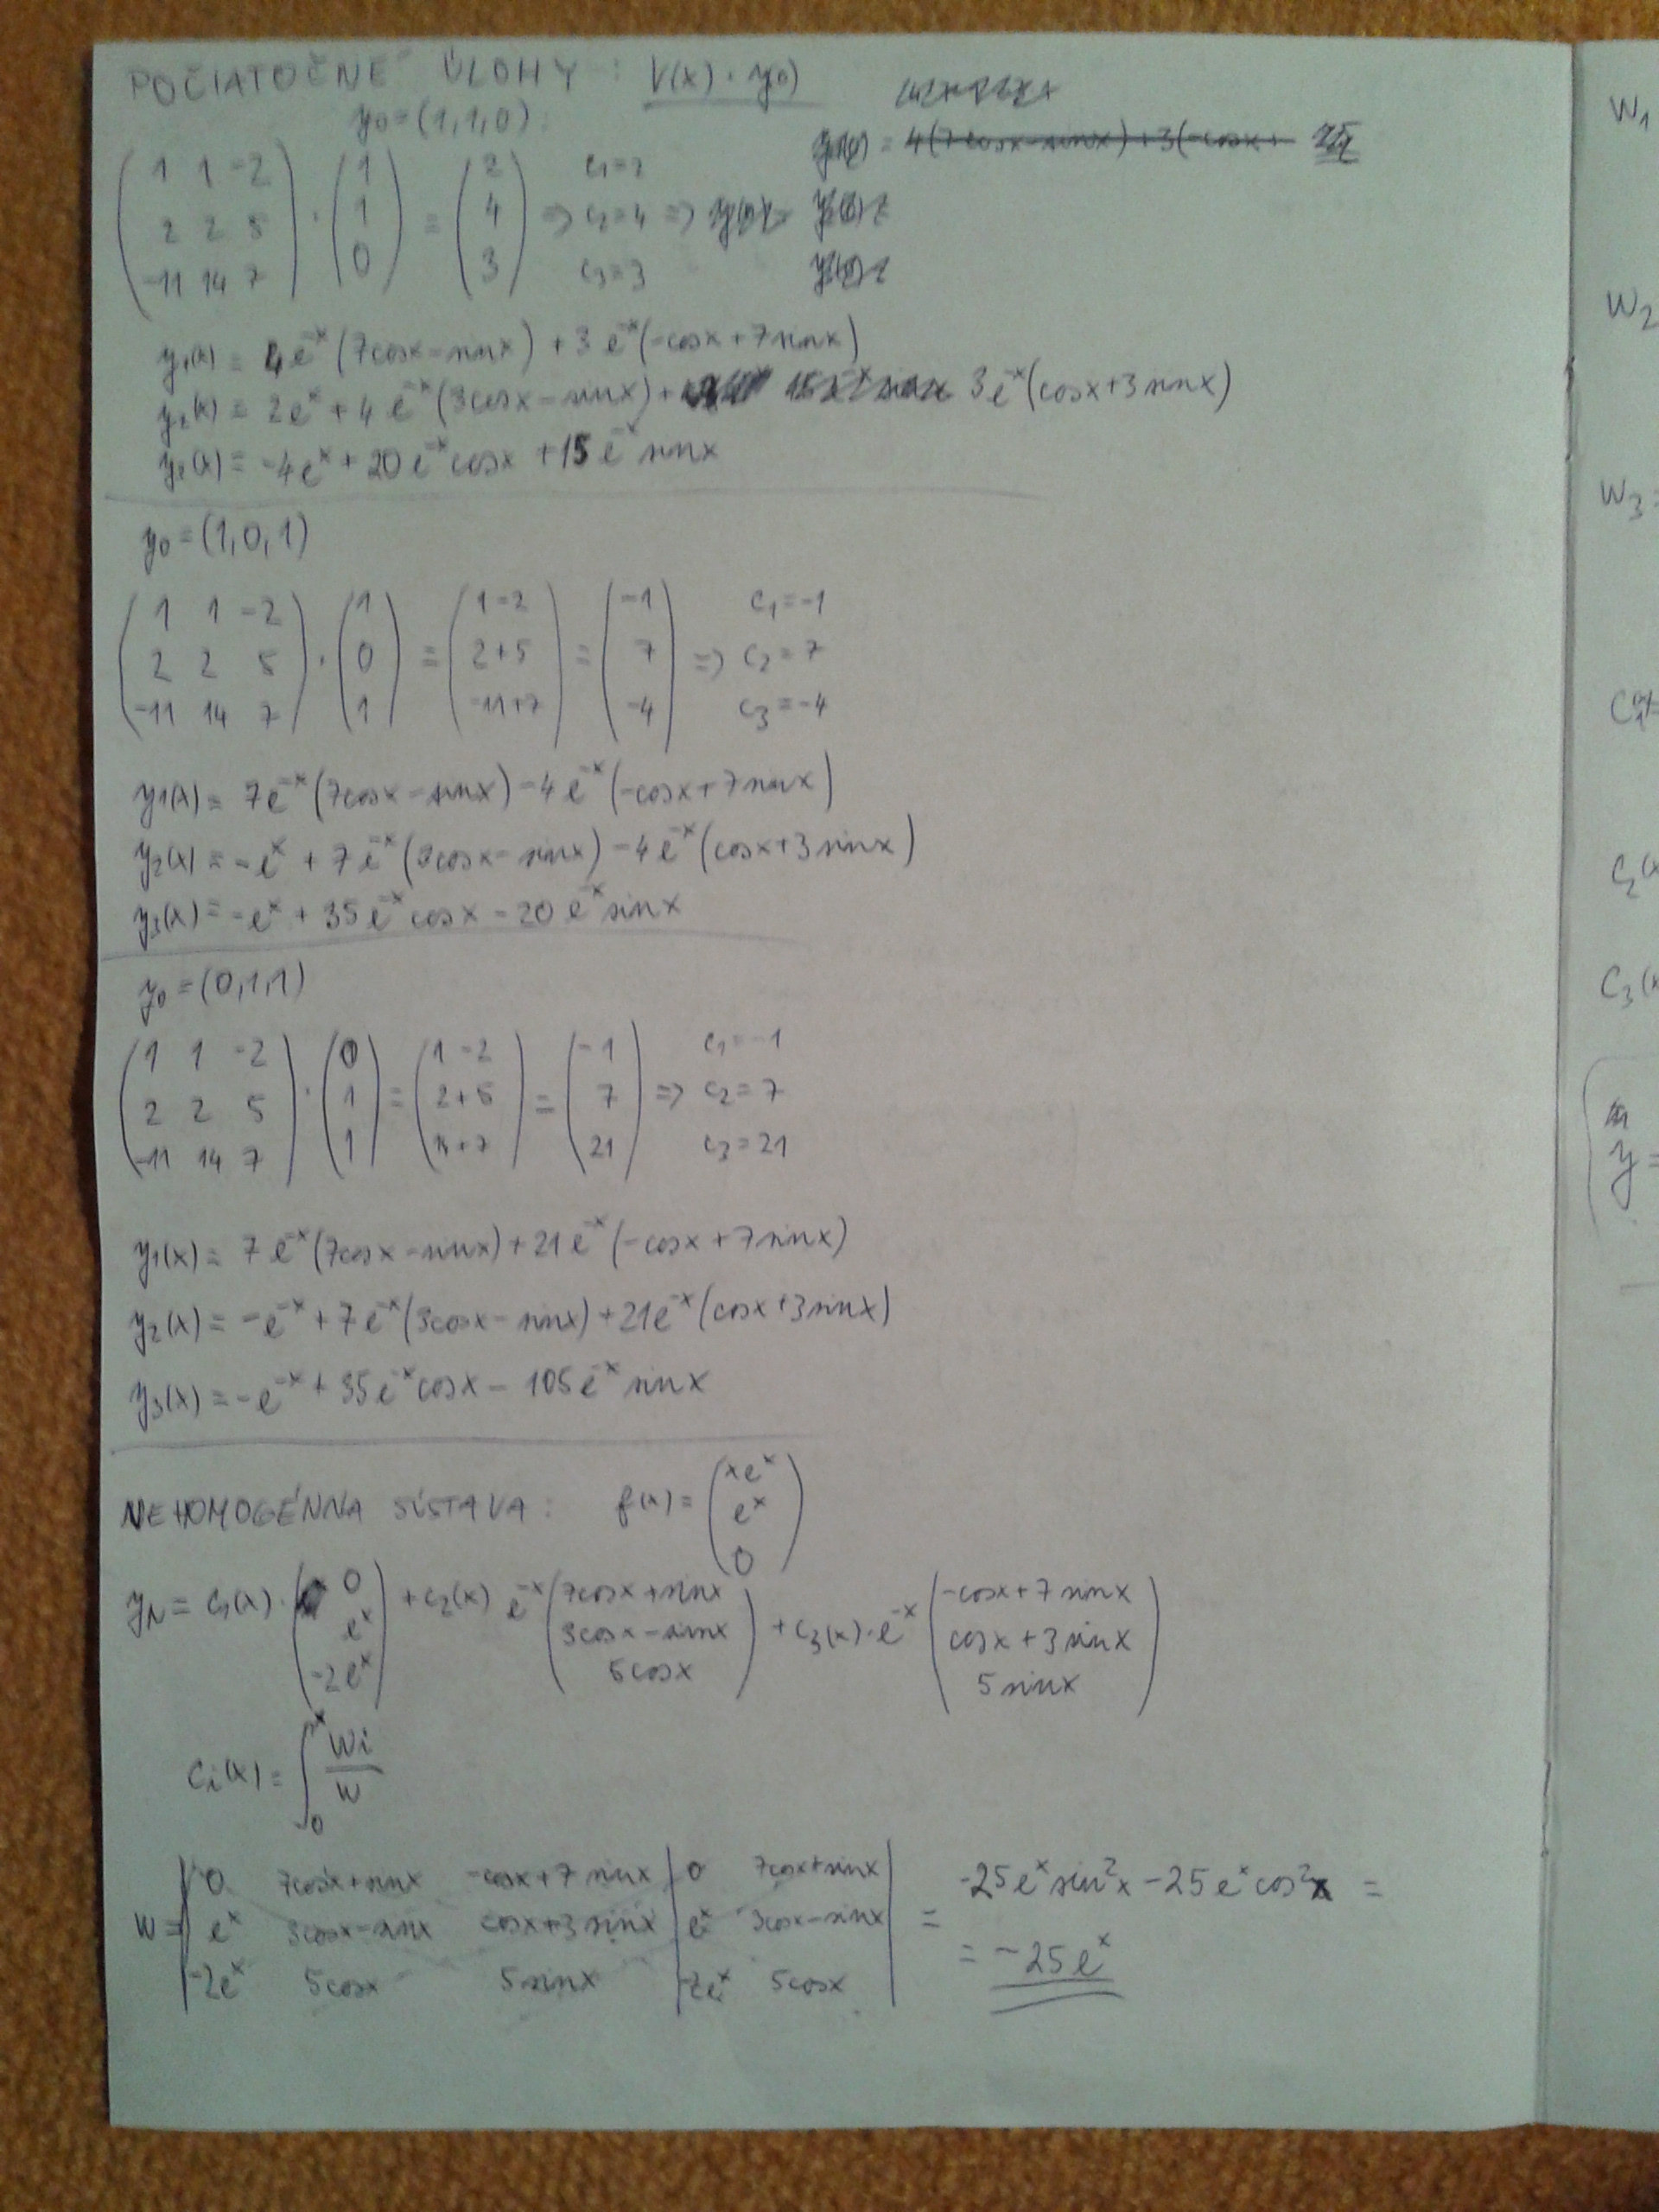 POČIATOČNÉ ÚLOHY : V(x) · y0)
y0 = (1,1,0):
( 1 1 -2 ; 2 2 5 ; -11 14 7 ) · ( 1 ; 1 ; 0 ) = ( 2 ; 4 ; 3 ) => c1=2 c2=4 c3=3 =>
4(7cosx-sinx)+3(-cosx+
y1(x) = 4e^-x (7cosx-sinx) + 3e^-x (-cosx+7sinx)
y2(x) = 2e^x + 4e^-x (3cosx-sinx) + 3e^-x (cosx+3sinx)
y2(x) = -4e^x + 20e^-x cosx + 15e^-x sinx
y0 = (1,0,1)
( 1 1 -2 ; 2 2 5 ; -11 14 7 ) · ( 1 ; 0 ; 1 ) = ( 1-2 ; 2+5 ; -11+7 ) = ( -1 ; 7 ; -4 ) => c1=-1 c2=7 c3=-4
y1(x) = 7e^-x (7cosx-sinx) - 4e^-x (-cosx+7sinx)
y2(x) = -e^x + 7e^-x (3cosx-sinx) - 4e^-x (cosx+3sinx)
y3(x) = -e^x + 35e^-x cosx - 20e^-x sinx
y0 = (0,1,1)
( 1 1 -2 ; 2 2 5 ; -11 14 7 ) · ( 0 ; 1 ; 1 ) = ( 1-2 ; 2+5 ; 14+7 ) = ( -1 ; 7 ; 21 ) => c1=-1 c2=7 c3=21
y1(x) = 7e^-x (7cosx-sinx) + 21e^-x (-cosx+7sinx)
y2(x) = -e^-x + 7e^-x (3cosx-sinx) + 21e^-x (cosx+3sinx)
y3(x) = -e^-x + 35e^-x cosx - 105e^-x sinx
NEHOMOGÉNNA SÚSTAVA : f(x) = ( xe^x ; e^x ; 0 )
yN = c1(x) · ( 0 ; e^x ; -2e^x ) + c2(x) e^-x ( 7cosx+sinx ; 3cosx-sinx ; 5cosx ) + c3(x)·e^-x ( -cosx+7sinx ; cosx+3sinx ; 5sinx )
ci(x) = ∫0^x Wi/W
W = | 0 7cosx+sinx -cosx+7sinx | 0 7cosx+sinx | = -25e^x sin²x - 25e^x cos²x =
e^x 3cosx-sinx cosx+3sinx | e^x 3cosx-sinx
-2e^x 5cosx 5sinx | -2e^x 5cosx = -25e^x
W1
W2
W3 =
C3(x
y =